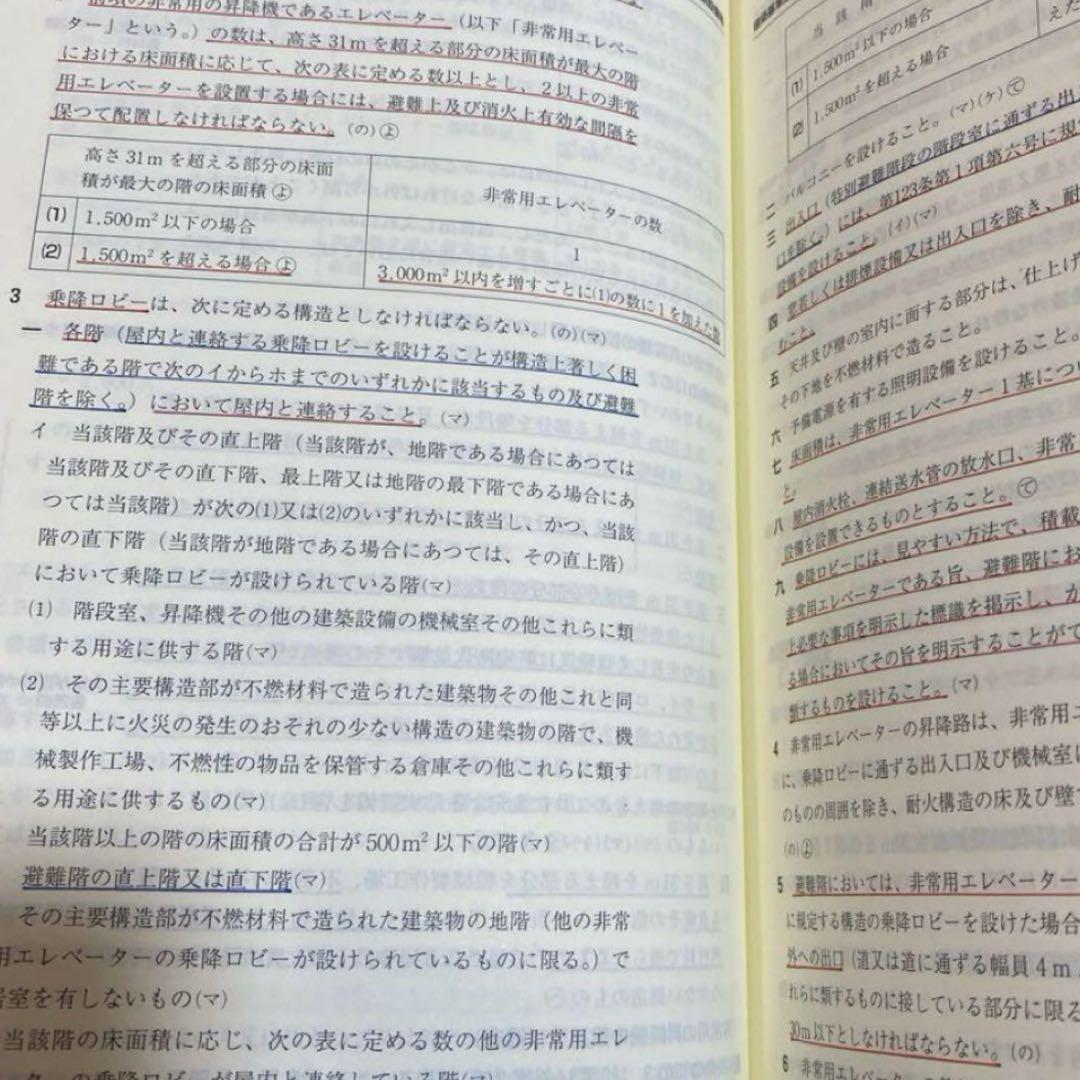 前項の非常用の昇降機であるエレベーター（以下「非常用エレベー
ター」という。）の数は、高さ31mを超える部分の床面積が最大の階
における床面積に応じて、次の表に定める数以上とし、2以上の非常
用エレベーターを設置する場合には、避難上及び消火上有効な間隔を
保つて配置しなければならない。(の)㋵
高さ31mを超える部分の床面
積が最大の階の床面積㋵
非常用エレベーターの数
(1) 1.500m²以下の場合 1
(2) 1,500m²を超える場合㋵ 3,000m²以内を増すごとに(1)の数に1を加えた数
3 乗降ロビーは、次に定める構造としなければならない。(の)(マ)
一 各階（屋内と連絡する乗降ロビーを設けることが構造上著しく困
難である階で次のイからホまでのいずれかに該当するもの及び避難
階を除く。）において屋内と連絡すること。(マ)
イ 当該階及びその直上階（当該階が、地階である場合にあつては
当該階及びその直下階、最上階又は地階の最下階である場合にあ
つては当該階）が次の(1)又は(2)のいずれかに該当し、かつ、当該
階の直下階（当該階が地階である場合にあつては、その直上階）
において乗降ロビーが設けられている階(マ)
(1) 階段室、昇降機その他の建築設備の機械室その他これらに類
する用途に供する階(マ)
(2) その主要構造部が不燃材料で造られた建築物その他これと同
等以上に火災の発生のおそれの少ない構造の建築物の階で、機
械製作工場、不燃性の物品を保管する倉庫その他これらに類す
る用途に供するもの(マ)
当該階以上の階の床面積の合計が500m²以下の階(マ)
避難階の直上階又は直下階(マ)
その主要構造部が不燃材料で造られた建築物の地階（他の非常
用エレベーターの乗降ロビーが設けられているものに限る。）で
居室を有しないもの(マ)
当該階の床面積に応じ、次の表に定める数の他の非常用エレ
ターの乗降ロビーが屋内と連絡している階(マ)
当該階
(1) 1.500m²以下の場合
(2) 1.500m²を超える場合
二 バルコニーを設けること。(マ)(ケ)㋢
三 出入口（特別避難階段の階段室に通ずる出
口を除く。）には、第123条第1項第六号に規
設備を設けること。(イ)(マ)
四 窓若しくは排煙設備又は出入口を除き、耐
むこと。
五 天井及び壁の室内に面する部分は、仕上げ
その下地を不燃材料で造ること。
六 予備電源を有する照明設備を設けること。
七 床面積は、非常用エレベーター1基につい
と。
八 屋内消火栓、連結送水管の放水口、非常
設備を設置できるものとすること。㋢
九 乗降ロビーには、見やすい方法で、積載
非常用エレベーターである旨、避難階にお
上必要な事項を明示した標識を掲示し、か
る場合においてその旨を明示することがで
類するものを設けること。(マ)
4 非常用エレベーターの昇降路は、非常用
に、乗降ロビーに通ずる出入口及び機械室に
のものの周囲を除き、耐火構造の床及び壁で
(の)㋵
5 避難階においては、非常用エレベーター
に規定する構造の乗降ロビーを設けた場合
外への出口（道又は道に通ずる幅員4m
れらに類するものに接している部分に限る
30m以下としなければならない。(の)
6 非常用エレベーター